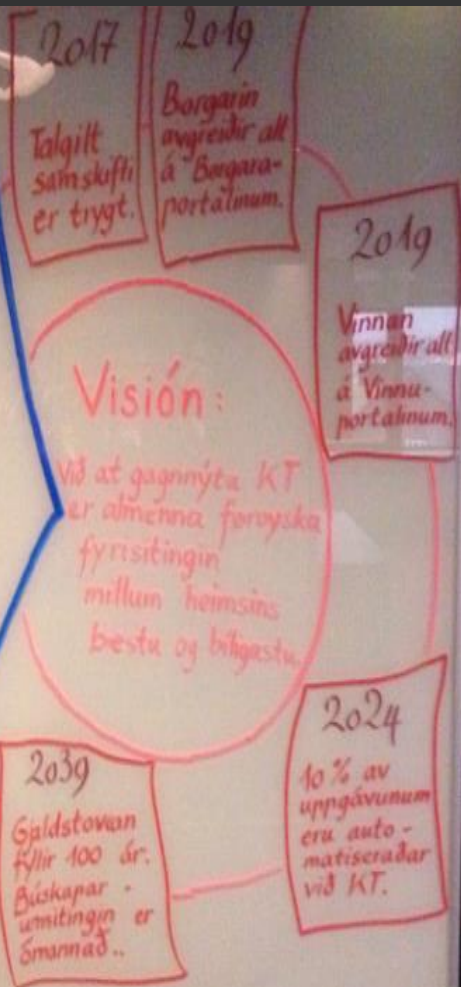 2017
Talgilt
samskifti
er trygt.
2019
Borgarin
avgreiðir alt
á Borgara-
portalinum.
2019
Vinnan
avgreiðir alt
á Vinnu-
portalinum.
Visión:
Við at gagnnýta KT
er almenna føroyska
fyrisitingin
millum heimsins
bestu og bíligastu.
2024
10% av
uppgávunum
eru auto-
matiseraðar
við KT.
2039
Gjaldstovan
fyllir 100 ár.
Búskapar-
umsitingin er
ómannað..